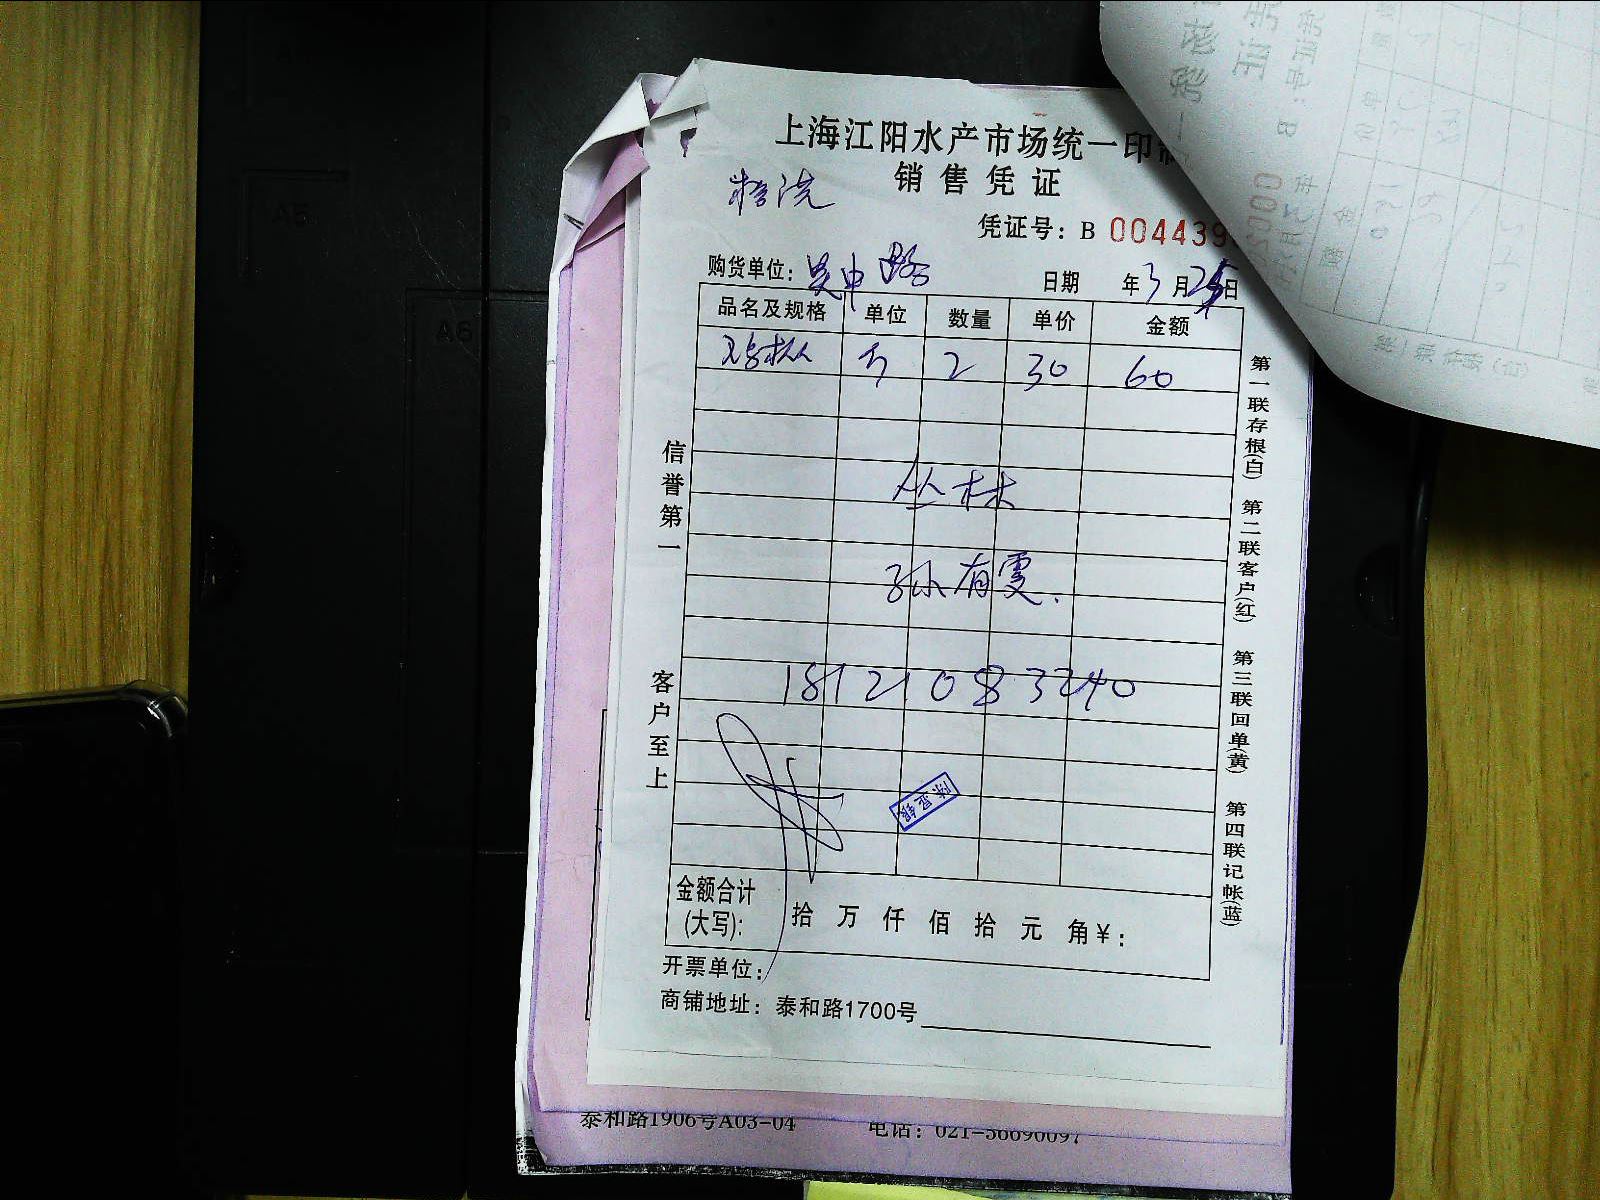 上海江阳水产市场统一印
销售凭证
凭证号：B 004439
购货单位：吴中路 日期 年3月25日
品名及规格 单位 数量 单价 金额
斤 2 30 60
丛林
孙有雯.
18121083240
信誉第一
客户至上
第一联存根(白) 第二联客户(红) 第三联回单(黄) 第四联记帐(蓝)
金额合计(大写)： 拾 万 仟 佰 拾 元 角￥：
开票单位：
商铺地址：泰和路1700号
泰和路1906号A03-04 电话：021-56690097